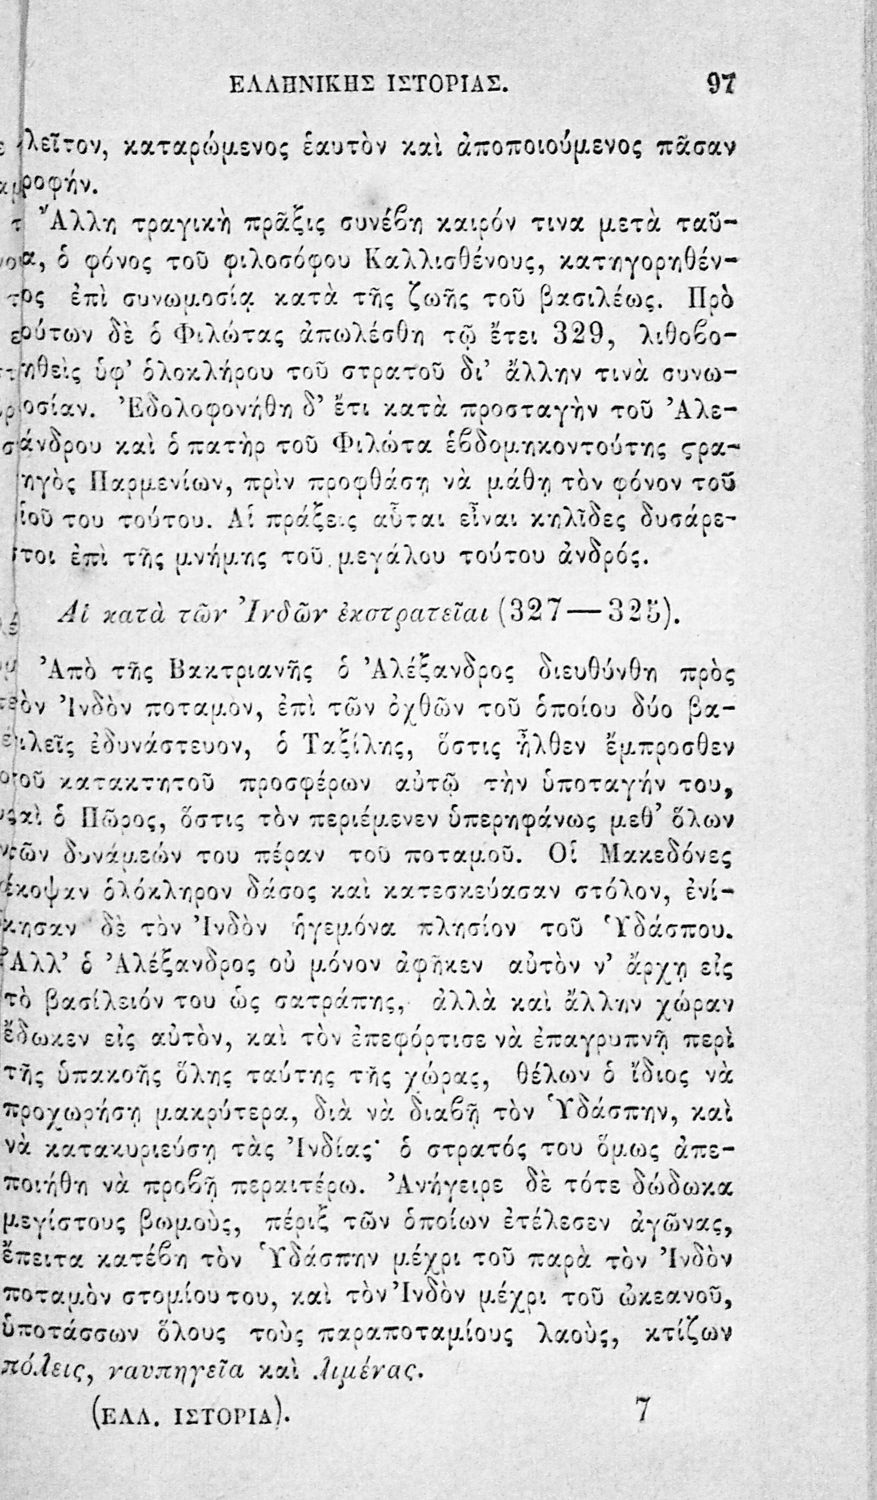 ΕΛΛΗΝΙΚΗΣ ΙΣΤΟΡΙΑΣ. 97
λεῖτον, καταρώμενος ἑαυτὸν καὶ ἀποποιούμενος πᾶσαν
ροφήν.
Ἄλλη τραγικὴ πρᾶξις συνέβη καιρόν τινα μετὰ ταῦ-
α, ὁ φόνος τοῦ φιλοσόφου Καλλισθένους, κατηγορηθέν-
τος ἐπὶ συνωμοσίᾳ κατὰ τῆς ζωῆς τοῦ βασιλέως. Πρὸ
ούτων δὲ ὁ Φιλώτας ἀπωλέσθη τῷ ἔτει 329, λιθοβο-
ηθεὶς ὑφ’ ὁλοκλήρου τοῦ στρατοῦ δι’ ἄλλην τινὰ συνω-
οσίαν. Ἐδολοφονήθη δ’ ἔτι κατὰ προσταγὴν τοῦ Ἀλε-
άνδρου καὶ ὁ πατὴρ τοῦ Φιλώτα ἑβδομηκοντούτης ϛρα-
ηγὸς Παρμενίων, πρὶν προφθάσῃ νὰ μάθῃ τὸν φόνον τοῦ
ἱοῦ του τούτου. Αἱ πράξεις αὗται εἶναι κηλῖδες δυσάρε-
τοι ἐπὶ τῆς μνήμης τοῦ μεγάλου τούτου ἀνδρός.
Αἱ κατὰ τῶν Ἰνδῶν ἐκστρατεῖαι (327—325).
Ἀπὸ τῆς Βακτριανῆς ὁ Ἀλέξανδρος διευθύνθη πρὸς
ὸν Ἰνδὸν ποταμὸν, ἐπὶ τῶν ὀχθῶν τοῦ ὁποίου δύο βα-
ιλεῖς ἐδυνάστευον, ὁ Ταξίλης, ὅστις ἦλθεν ἔμπροσθεν
τοῦ κατακτητοῦ προσφέρων αὐτῷ τὴν ὑποταγήν του,
αὶ ὁ Πῶρος, ὅστις τὸν περιέμενεν ὑπερηφάνως μεθ’ ὅλων
τῶν δυνάμεών του πέραν τοῦ ποταμοῦ. Οἱ Μακεδόνες
ἔκοψαν ὁλόκληρον δάσος καὶ κατεσκεύασαν στόλον, ἐνί-
κησαν δὲ τὸν Ἰνδὸν ἡγεμόνα πλησίον τοῦ Ὑδάσπου.
Ἀλλ’ ὁ Ἀλέξανδρος οὐ μόνον ἀφῆκεν αὐτὸν ν’ ἄρχῃ εἰς
τὸ βασίλειόν του ὡς σατράπης, ἀλλὰ καὶ ἄλλην χώραν
ἔδωκεν εἰς αὐτὸν, καὶ τὸν ἐπεφόρτισε νὰ ἐπαγρυπνῇ περὶ
τῆς ὑπακοῆς ὅλης ταύτης τῆς χώρας, θέλων ὁ ἴδιος νὰ
προχωρήσῃ μακρύτερα, διὰ νὰ διαβῇ τὸν Ὑδάσπην, καὶ
νὰ κατακυριεύσῃ τὰς Ἰνδίας· ὁ στρατός του ὅμως ἀπε-
ποιήθη νὰ προβῇ περαιτέρω. Ἀνήγειρε δὲ τότε δώδωκα
μεγίστους βωμοὺς, πέριξ τῶν ὁποίων ἐτέλεσεν ἀγῶνας,
ἔπειτα κατέβη τὸν Ὑδάσπην μέχρι τοῦ παρὰ τὸν Ἰνδὸν
ποταμὸν στομίου του, καὶ τὸν Ἰνδὸν μέχρι τοῦ ὠκεανοῦ,
ὑποτάσσων ὅλους τοὺς παραποταμίους λαοὺς, κτίζων
πόλεις, ναυπηγεῖα καὶ λιμένας.
(ΕΛΛ. ΙΣΤΟΡΙΑ). 7